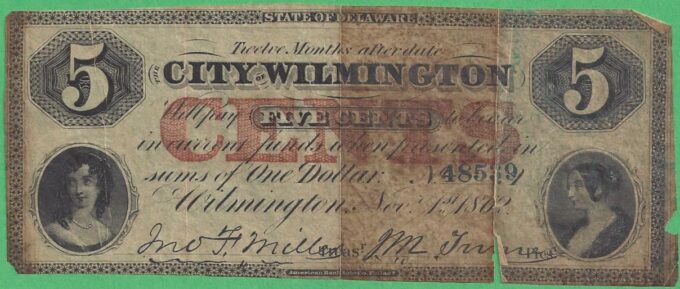 STATE OF DELAWARE
5 5
Twelve Months after date
THE CITY OF WILMINGTON
Will pay FIVE CENTS to bearer
CENTS
in current funds when presented in
sums of One Dollar. 148539
Wilmington, Nov. 1st 1862
Jno F. Miller Treasr
American Bank Note Co.